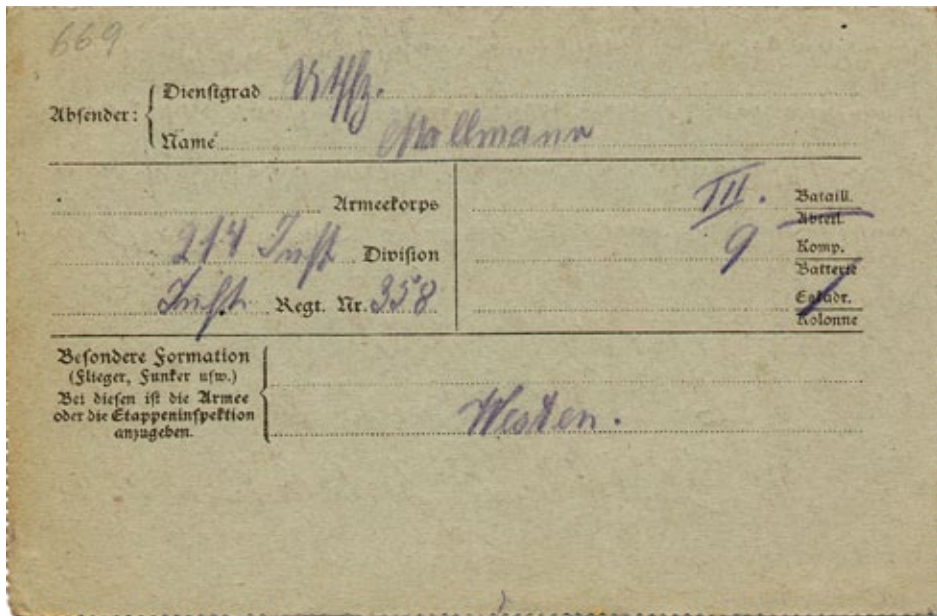 669
Absender: Dienstgrad Utffz.
Name Wallmann
Armeekorps
214 Inft Division
Inft. Regt. Nr. 358
III. Bataill.
Abteil.
9 Komp.
Batterie
Eskadr.
Kolonne
Besondere Formation
(Flieger, Funker usw.)
Bei diesen ist die Armee
oder die Etappeninspektion
anzugeben.
Westen.